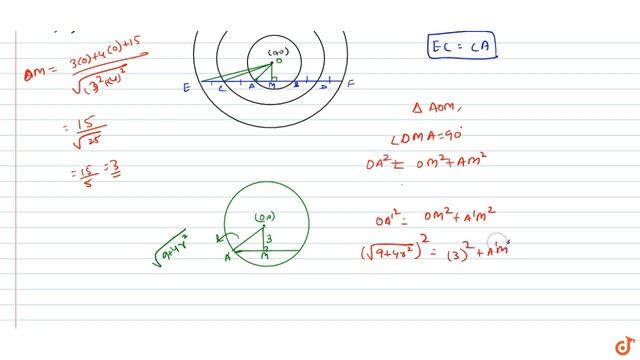 OM = 3(0)+4(0)+15
√(3)²+(4)²
= 15
√25
= 15 = 3
5
(0,0)
O
E C A M B D F
EC = CA
Δ AOM,
∠OMA=90°
OA² = OM²+AM²
√9+4r²
(0,0)
3
A' M
OA'² = OM²+A'M²
(√9+4r²)² = (3)² + A'M²